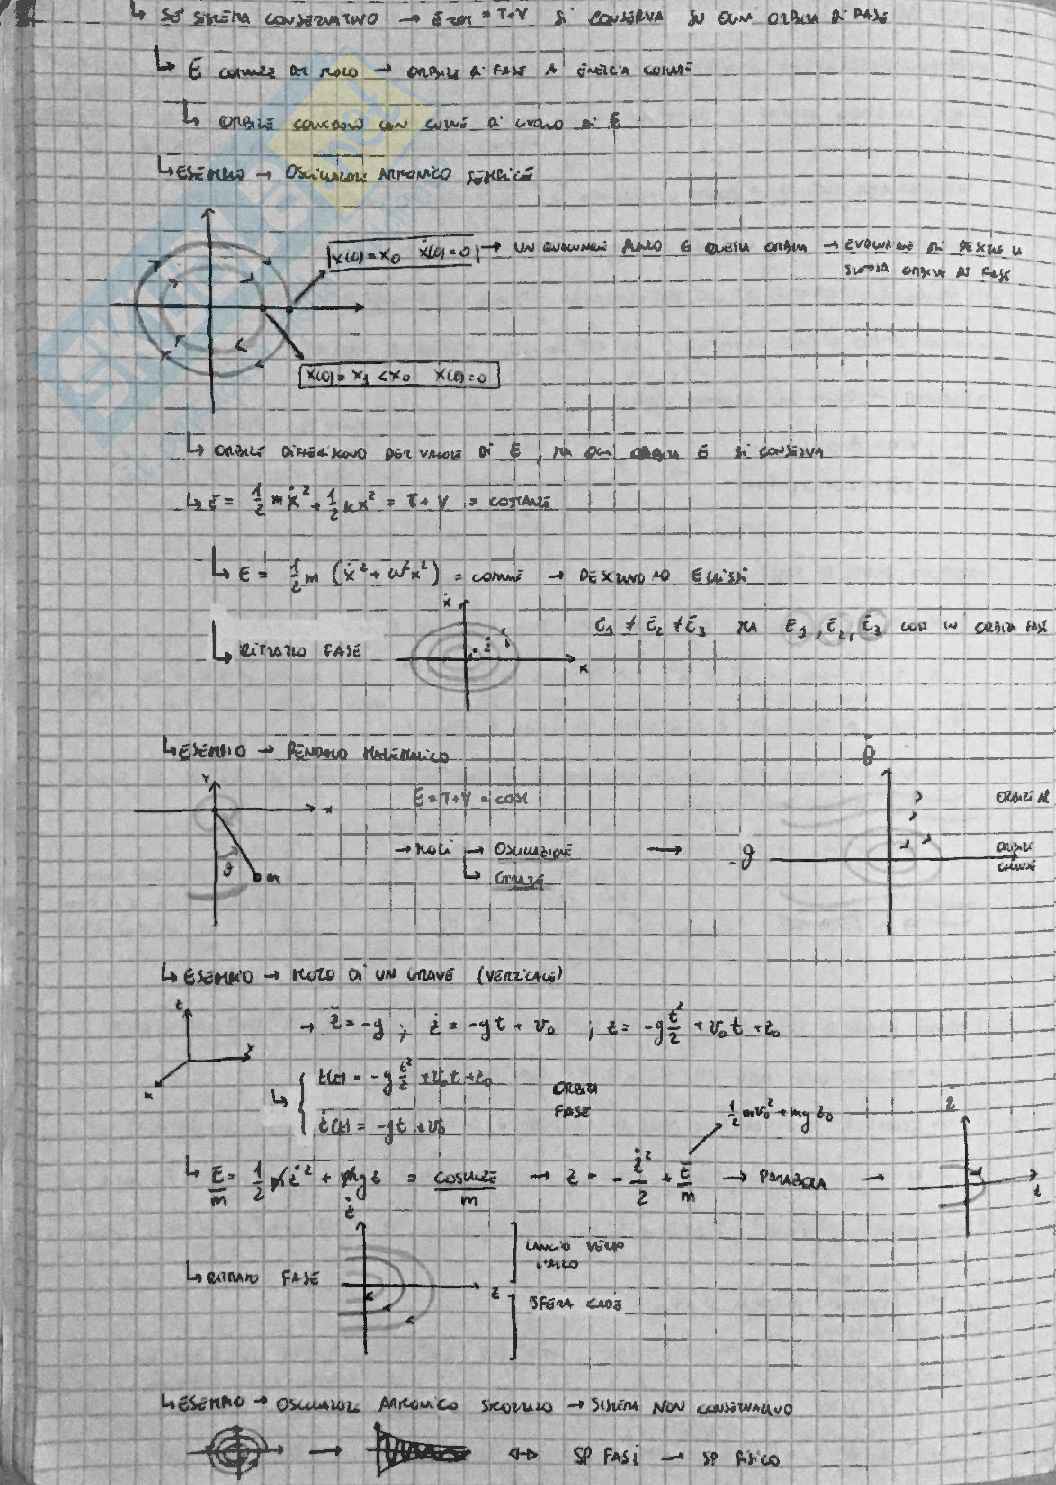 ↳ SE SISTEMA CONSERVATIVO → E TOT = T+V SI CONSERVA SU OGNI ORBITA DI FASE
↳ E COSTANTE DI MOTO → ORBITE DI FASE A ENERGIA COSTANTE
↳ ORBITE COINCIDONO CON CURVE DI LIVELLO DI E
↳ ESEMPIO → OSCILLATORE ARMONICO SEMPLICE
x(0)=x₀ ẋ(0)=0 → UN QUALUNQUE PUNTO È QUESTA ORBITA → EVOLUZIONE
STESSA ORBITA DI FASE
x(0)=x₁<x₀ ẋ(0)=0
↳ ORBITE DIFFERISCONO PER VALORE DI E, MA OGNI ORBITA E SI CONSERVA
↳ E = 1/2 mẋ² + 1/2 kx² = T+V = COSTANTE
↳ E = 1/2 m (ẋ² + ω²x²) = COSTANTE → DESCRIVONO ELLISSI
ẋ
E₁ ≠ E₂ ≠ E₃ MA E₁, E₂, E₃ COST IN ORBITA FASE
↳ RITRATTO FASE
x
↳ ESEMPIO → PENDOLO MATEMATICO
y
x
E = T+V = COST
→ MOTI → OSCILLAZIONE
↳
ϑ m
ORBITE
↳ ESEMPIO → MOTO DI UN GRAVE (VERTICALE)
z
y
x
→ z̈ = -g ; ż = -gt + v₀ ; z = -g t²/2 + v₀t + z₀
↳ { z(t) = -g t²/2 + v₀t + z₀
ż(t) = -gt + v₀
ORBITA
FASE
1/2 mv₀² + mgz₀
↳ E/m = 1/2 ṁż² + mgz = COSTANTE/m → z = -ż²/2 + E/m → PARABOLA →
ż
z
↳ RITRATTO FASE
z
LANCIO VERSO
L'ALTO
SFERA CADE
↳ ESEMPIO → OSCILLATORE ARMONICO SMORZATO → SISTEMA NON CONSERVATIVO
→ ↔ SP FASI → SP FISICO